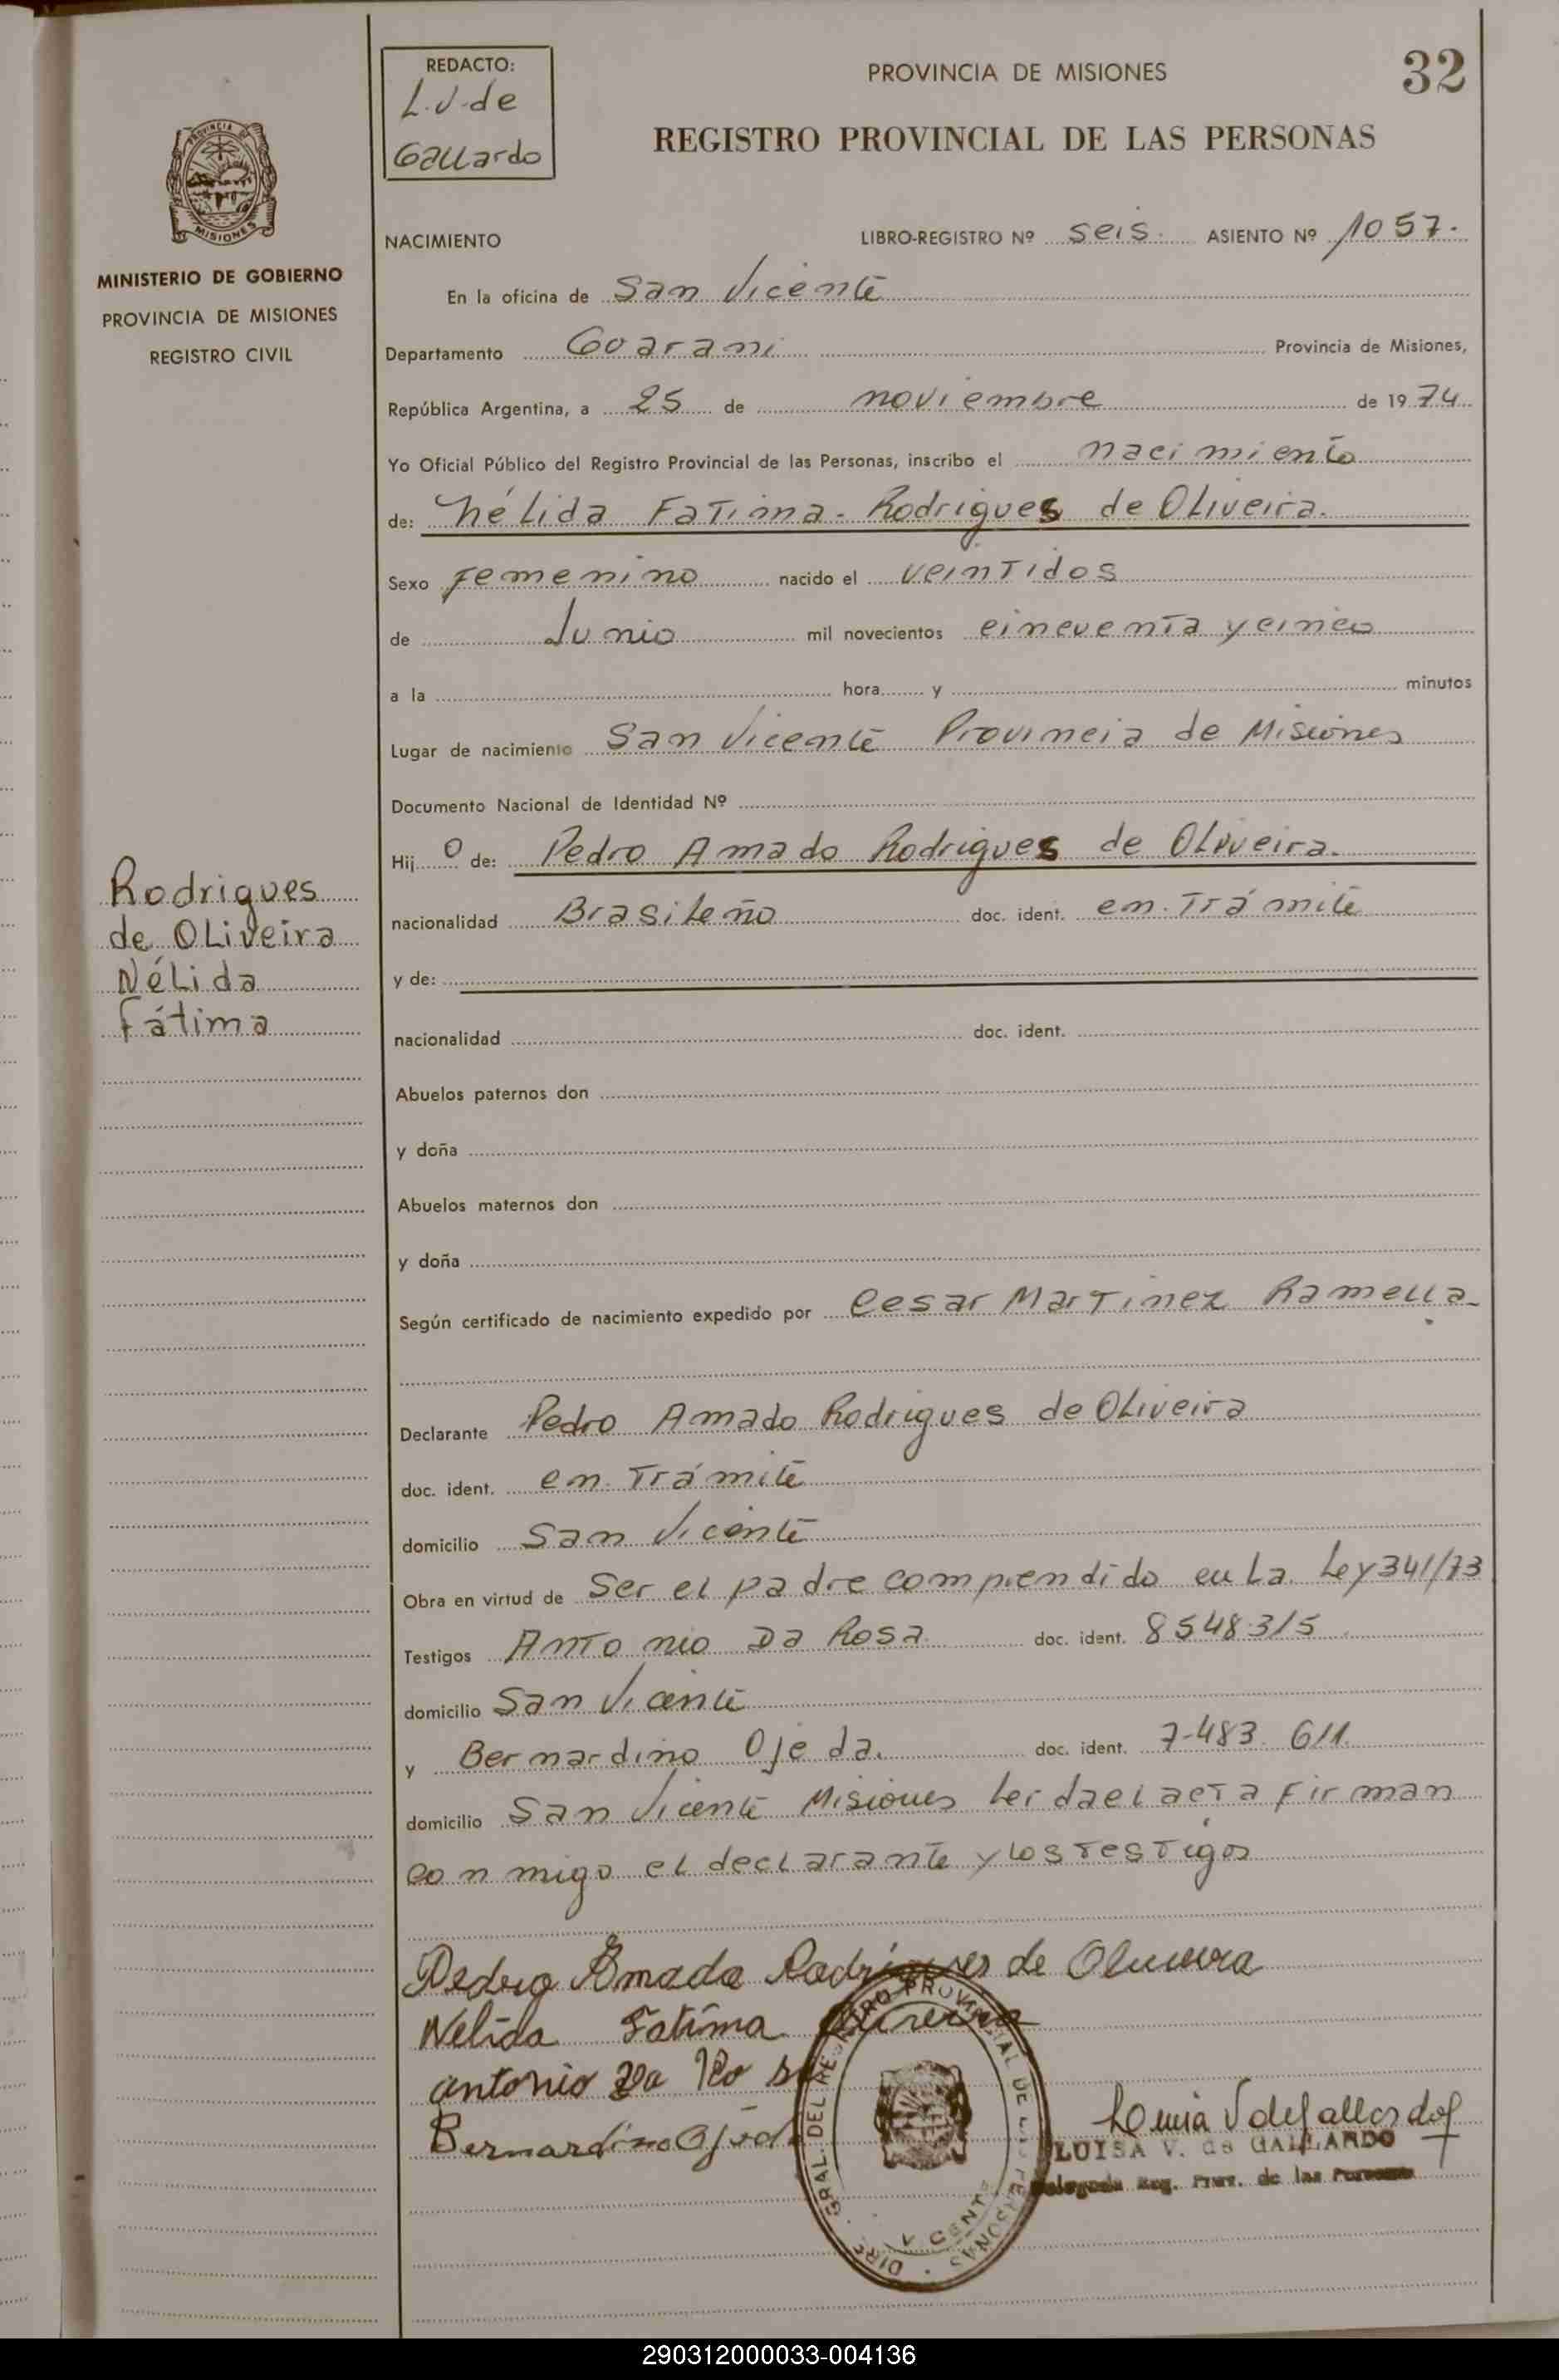 REDACTO:
L.V. de
Gallardo
PROVINCIA DE MISIONES
32
REGISTRO PROVINCIAL DE LAS PERSONAS
PROVINCIA DE
MISIONES
MINISTERIO DE GOBIERNO
PROVINCIA DE MISIONES
REGISTRO CIVIL
NACIMIENTO LIBRO-REGISTRO Nº seis. ASIENTO Nº 1057.
En la oficina de San Vicente
Departamento Guarani Provincia de Misiones,
República Argentina, a 25 de noviembre de 1974
Yo Oficial Público del Registro Provincial de las Personas, inscribo el nacimiento
de: Nélida Fatima. Rodrigues de Oliveira.
Sexo femenino nacido el veintidos
de Junio mil novecientos cincuenta y cinco
a la hora y minutos
Lugar de nacimiento San Vicente Provincia de Misiones
Documento Nacional de Identidad Nº
Hij o de: Pedro Amado Rodrigues de Oliveira.
nacionalidad Brasileño doc. ident. en. Trámite
y de:
nacionalidad doc. ident.
Rodrigues
de Oliveira
Nélida
Fátima
Abuelos paternos don
y doña
Abuelos maternos don
y doña
Según certificado de nacimiento expedido por Cesar Martinez Ramella
Declarante Pedro Amado Rodrigues de Oliveira
doc. ident. en. Trámite
domicilio San Vicente
Obra en virtud de ser el padre comprendido en la Ley 341/73
Testigos Antonio Da Rosa doc. ident. 8548315
domicilio San Vicente
y Bernardino Ojeda. doc. ident. 7-483. 611.
domicilio San Vicente Misiones leida el acta firman
conmigo el declarante y los testigos
Pedro Amado Rodrigues de Oliveira
Nelida Fatima Oliveira
Antonio Da Rosa
Bernardino Ojeda
Luisa V de Gallardo
LUISA V. de GALLARDO
Delegada Reg. Prov. de las Personas
DIRE. GRAL. DEL REGISTRO PROVINCIAL DE LAS PERSONAS
290312000033-004136